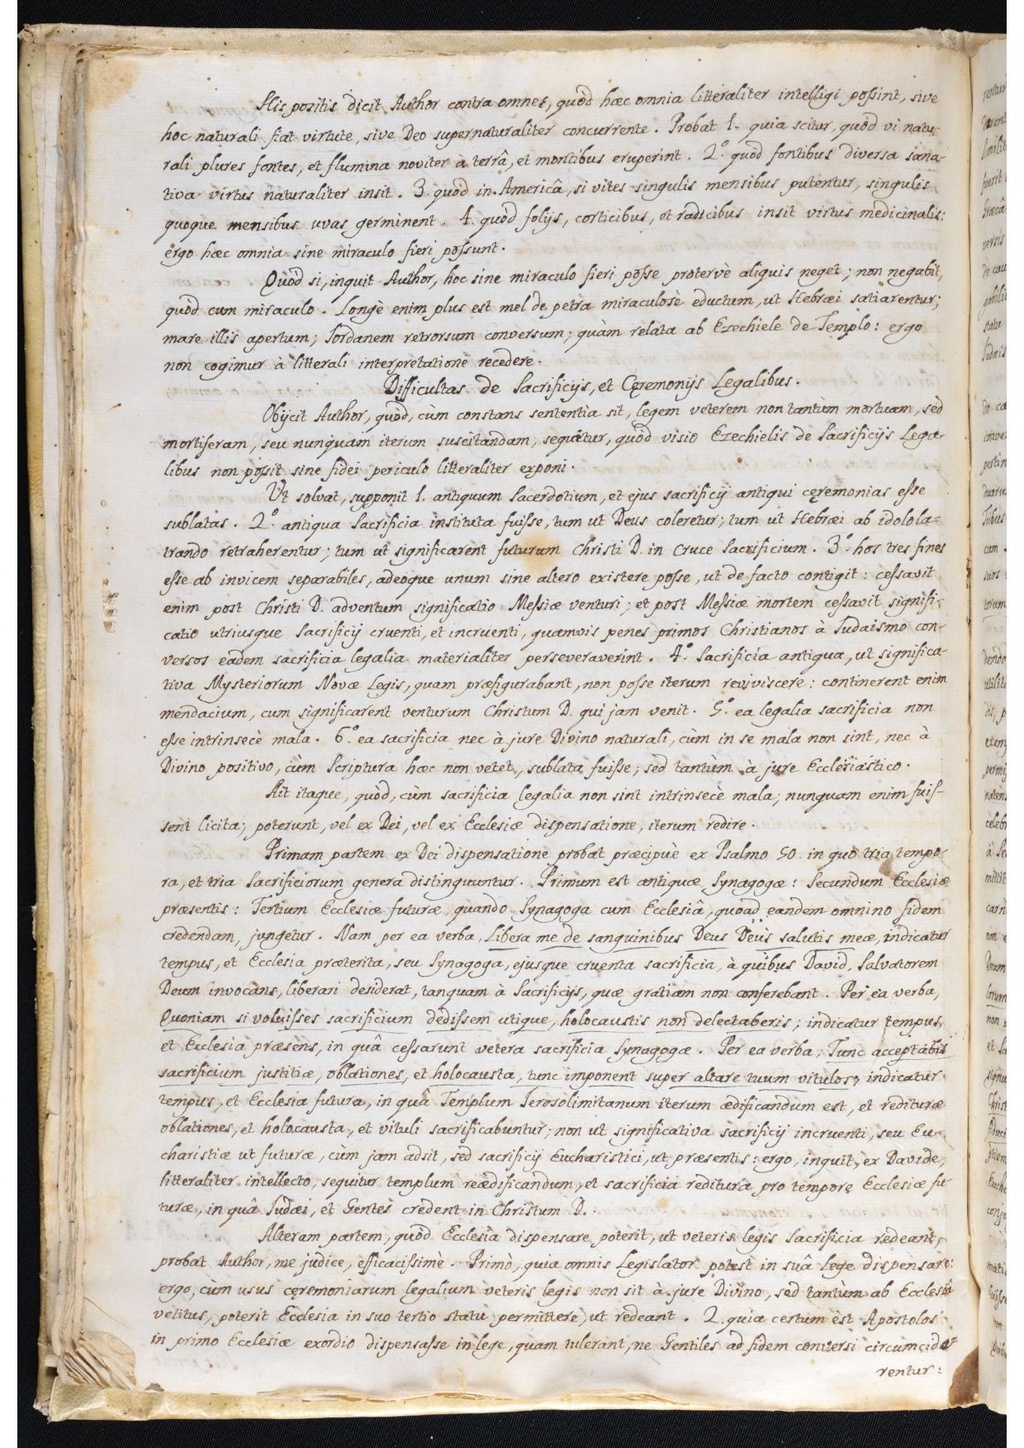 His positis dicit Author contra omnes, quòd hæc omnia litteraliter intelligi possint, sive
hoc naturali fiat virtute, sive Deo supernaturaliter concurrente. Probat 1. quia scitur, quòd vi natu-
rali plures fontes, et flumina noviter à terrâ, et montibus eruperint. 2.º quòd fontibus diversa sana-
tiva virtus naturaliter insit. 3. quòd in Americâ, si vites singulis mensibus putentur, singulis
quoque mensibus uvas germinent. 4. quòd folijs, corticibus, et radicibus insit virtus medicinalis:
ergo hæc omnia sine miraculo fieri possunt.
Quòd si, inquit Author, hoc sine miraculo fieri posse protervè aliquis neget; non negabit,
quòd cum miraculo. Longè enim plus est mel de petra miraculosè eductum, ut Hebræi satiarentur;
mare illis apertum; Jordanem retrorsum conversum; quam relata ab Ezechiele de Templo: ergo
non cogimur à litterali interpretatione recedere.
Difficultas de Sacrificijs, et Cęremonijs Legalibus.
Obijcit Author, quòd, cùm constans sententia sit, legem veterem non tantùm mortuam, sed
mortiferam, seu nunquam iterum suscitandam, sequatur, quòd visio Ezechielis de Sacrificijs Lega-
libus non possit sine fidei periculo litteraliter exponi.
Ut solvat, supponit 1. antiquum Sacerdotium, et ejus sacrificij antiqui cęremonias esse
sublatas. 2.º antiqua Sacrificia instituta fuisse, tum ut Deus coleretur; tum ut Hebræi ab idolola-
trando retraherentur; tum ut significarent futurum Christi D. in Cruce Sacrificium. 3.º hos tres fines
esse ab invicem separabiles, adeoque unum sine altero existere posse, ut de facto contigit: cessavit
enim post Christi D. adventum significatio Messiæ venturi; et post Messiæ mortem cessavit signifi-
catio utriusque Sacrificij cruenti, et incruenti, quamvis penes primos Christianos à Judaismo con-
versos eadem sacrificia legalia materialiter perseveraverint. 4.º Sacrificia antiqua, ut significa-
tiva Mysteriorum Novæ Legis, quam præfigurabant, non posse iterum reviviscere: continerent enim
mendacium, cum significarent venturum Christum D. qui jam venit. 5.º ea legalia sacrificia non
esse intrinsecè mala. 6.º ea sacrificia nec à jure Divino naturali, cùm in se mala non sint, nec à
Divino positivo, cùm Scriptura hæc non vetet, sublata fuisse; sed tantùm à jure Ecclesiastico.
Ait itaque, quòd, cùm sacrificia legalia non sint intrinsecè mala; nunquam enim fuis-
sent licita; poterunt, vel ex Dei, vel ex Ecclesiæ dispensatione, iterum redire.
Primam partem ex Dei dispensatione probat præcipuè ex Psalmo 50. in quo tria tempo-
ra, et tria Sacrificiorum genera distinguuntur. Primum est antiquæ Synagogæ: Secundum Ecclesiæ
præsentis: Tertium Ecclesiæ futuræ, quando Synagoga cum Ecclesiâ, quoad eandem omnino fidem
credendam, jungetur. Nam per ea verba, Libera me de sanguinibus Deus Deus salutis meæ, indicatur
tempus, et Ecclesia præterita, seu Synagoga, ejusque cruenta sacrificia, à quibus David, Salvatorem
Deum invocans, liberari desiderat, tanquam à Sacrificijs, quæ gratiam non conferebant. Per ea verba,
Quoniam si voluisses sacrificium dedissem utique, holocaustis non delectaberis; indicatur tempus,
et Ecclesia præsens, in quâ cessarunt vetera sacrificia Synagogæ. Per ea verba, Tunc acceptabis
sacrificium justitiæ, oblationes, et holocausta, tunc imponent super altare tuum vitulos, indicatur
tempus, et Ecclesia futura, in quâ Templum Ierosolimitanum iterum ædificandum est, et redituræ
oblationes, et holocausta, et vituli sacrificabuntur; non ut significativa sacrificij incruenti, seu Eu-
charistiæ ut futuræ, cùm jam adsit, sed sacrificij Eucharistici, ut præsentis: ergo, inquit, ex Davide,
litteraliter intellecto, sequitur templum reædificandum, et sacrificia reditura pro tempore Ecclesiæ fu-
turæ, in quâ Judæi, et Gentes credent in Christum D.
Alteram partem, quòd Ecclesia dispensare poterit, ut veteris legis Sacrificia redeant,
probat Author, me judice, efficacissimè. Primò, quia omnis Legislator potest in suâ Lege dispensare:
ergo, cùm usus cęremoniarum legalium veteris legis non sit à jure Divino, sed tantùm ab Ecclesiâ
vetitus, poterit Ecclesia in suo tertio statu permittere, ut redeant. 2. quia certum est Apostolos
in primo Ecclesiæ exordio dispensasse in lege, quam tulerant, ne Gentiles ad fidem conversi circumcide-
rentur: